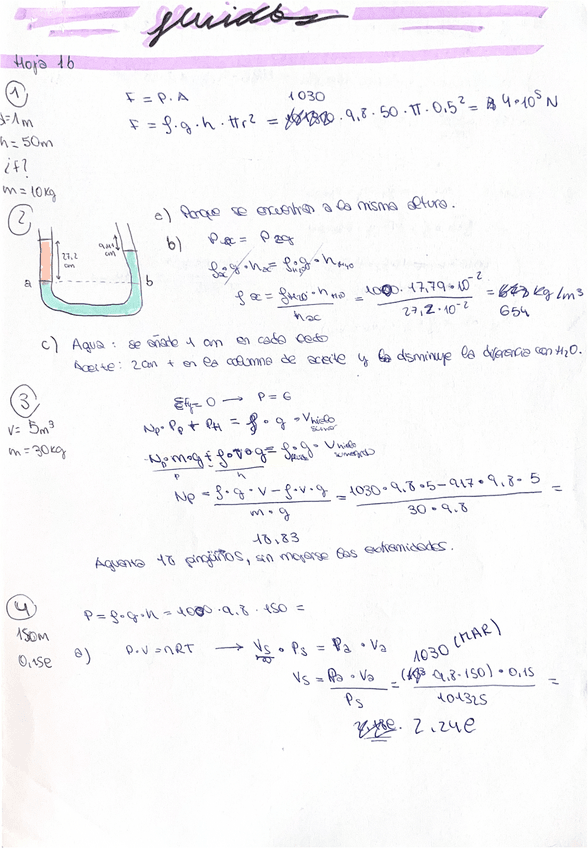 fluidos
Hoja 1b
①
d=1m
h=50m
¿f?
m=10kg
F = P·A
1030
F = ρ·g·h·πr² = ·9,8·50·π·0,5² = 4·10⁵ N
②
27,2 cm
9,41 cm
a
b
a) Porque se encuentran a la misma altura.
b)
ρac·g·hac = ρH₂O·g·hH₂O
ρac = ρH₂O·hH₂O / hac = 1000·17,79·10⁻² / 27,2·10⁻² = kg/m³
654
c) Agua: se añade 1 cm en cada lado
Aceite: 2cm + en la columna de aceite y disminuye la diferencia con H₂O.
③
V= 5m³
m=30kg
ΣFy=0 → P=G
Np·Pp + PH = ρ·g·Vhielo
Np·m·g + ρ·v·g = ρ·g·Vhielo
P
h
Np = ρ·g·V - ρ·v·g / m·g = 1030·9,8·5-917·9,8·5 / 30·9,8 =
18,83
Aguanta 18 pingüinos, sin mojarse las extremidades.
④
150m
0,15l
P=ρ·g·h = 1000·9,8·150 =
a) P·V=nRT → Vs·Ps = Pa·Va
1030 (MAR)
Vs = Pa·Va / Ps = ( 9,8·150)·0,15 / 101325 =
2,24l